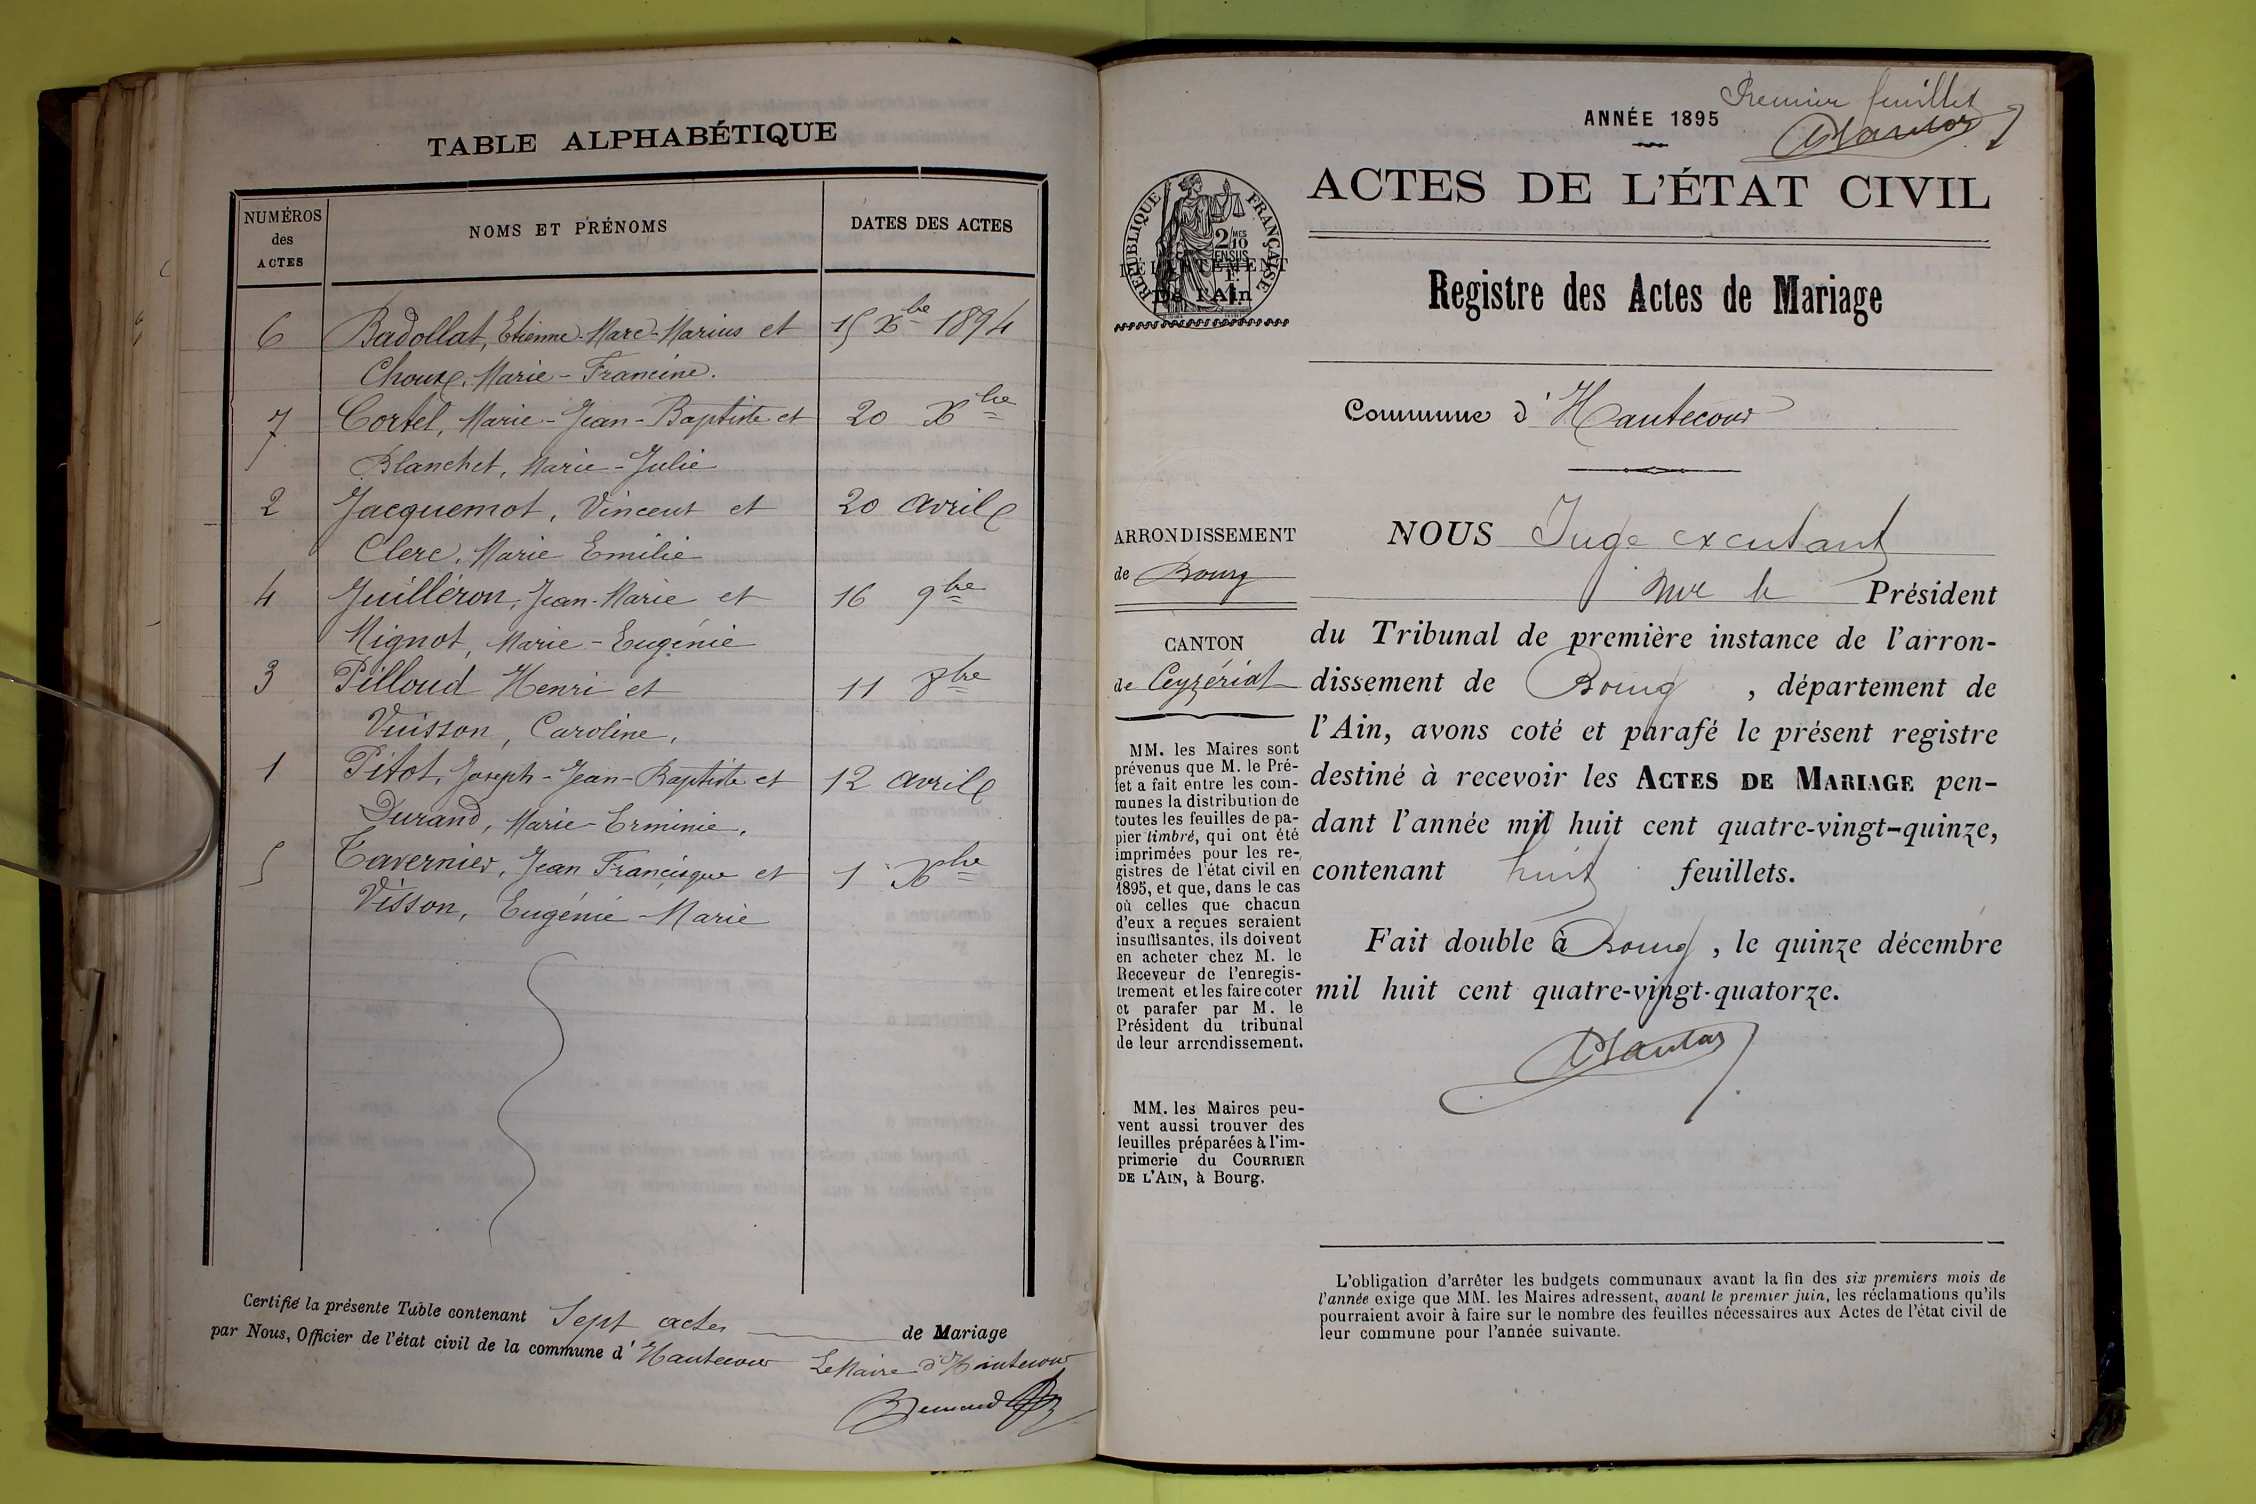 TABLE ALPHABÉTIQUE
NUMÉROS
des
ACTES
NOMS ET PRÉNOMS
DATES DES ACTES
6 Badollat, Etienne-Marc-Marius et 15 Xbre 1894
Choux, Marie-Francine.
7 Cortel, Marie-Jean-Baptiste et 20 Xbre
Blanchet, Marie-Julie
2 Jacquemot, Vincent et 20 avril
Clerc, Marie Emilie
4 Juilléron, Jean-Marie et 16 9bre
Mignot, Marie-Eugénie
3 Pilloud Henri et 11 8bre
Vuisson, Caroline,
1 Pitot, Joseph-Jean-Baptiste et 12 avril
Durand, Marie-Erminie,
5 Tavernier, Jean Francisque et 1 Xbre
Visson, Eugénie-Marie
Certifié la présente Table contenant Sept actes de Mariage
par Nous, Officier de l'état civil de la commune d'Hautecour Le Maire d'Hautecour
ANNÉE 1895
Premier feuillet
ACTES DE L'ÉTAT CIVIL
RÉPUBLIQUE FRANÇAISE
2/10 MES
EN SUS
DÉPARTEMENT
De l'Ain
Registre des Actes de Mariage
Commune d'Hautecour
ARRONDISSEMENT
de Bourg
CANTON
de Ceyzériat
MM. les Maires sont
prévenus que M. le Pré-
fet a fait entre les com-
munes la distribution de
toutes les feuilles de pa-
pier timbré, qui ont été
imprimées pour les re-
gistres de l'état civil en
1895, et que, dans le cas
où celles que chacun
d'eux a reçues seraient
insuffisantes, ils doivent
en acheter chez M. le
Receveur de l'enregis-
trement et les faire coter
et parafer par M. le
Président du tribunal
de leur arrondissement.
MM. les Maires peu-
vent aussi trouver des
feuilles préparées à l'im-
primerie du COURRIER
DE L'AIN, à Bourg.
NOUS Juge
Président
du Tribunal de première instance de l'arron-
dissement de Bourg, département de
l'Ain, avons coté et parafé le présent registre
destiné à recevoir les ACTES DE MARIAGE pen-
dant l'année mil huit cent quatre-vingt-quinze,
contenant huit feuillets.
Fait double à Bourg, le quinze décembre
mil huit cent quatre-vingt-quatorze.
L'obligation d'arrêter les budgets communaux avant la fin des six premiers mois de
l'année exige que MM. les Maires adressent, avant le premier juin, les réclamations qu'ils
pourraient avoir à faire sur le nombre des feuilles nécessaires aux Actes de l'état civil de
leur commune pour l'année suivante.